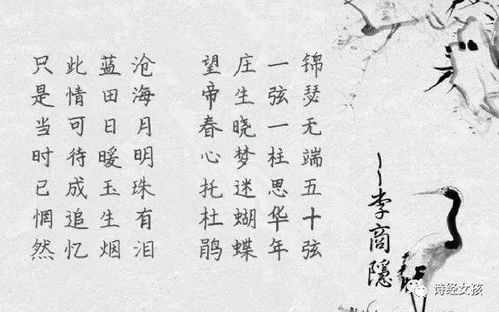 锦瑟无端五十弦
一弦一柱思华年
庄生晓梦迷蝴蝶
望帝春心托杜鹃
沧海月明珠有泪
蓝田日暖玉生烟
此情可待成追忆
只是当时已惘然
李商隐
诗经女孩